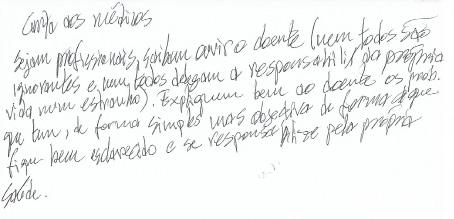 Carta aos médicos
Sejam profissionais, saibam ouvir o doente (nem todos são
ignorantes e nem todos delegam a responsabilid. da própria
vida num estranho). Expliquem bem ao doente os prob.
que tem, de forma simples mas objetiva de forma a que
fique bem esclarecido e se responsabilize pela própria
saúde.